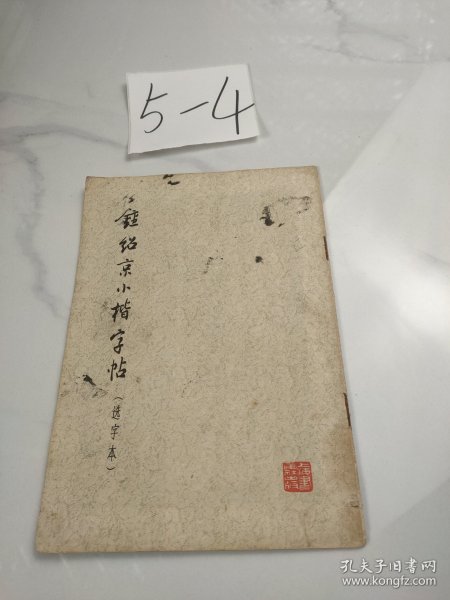 5-4
鍾绍京小楷字帖
(选字本)
上海书画
孔夫子旧书网
www.kongfz.com